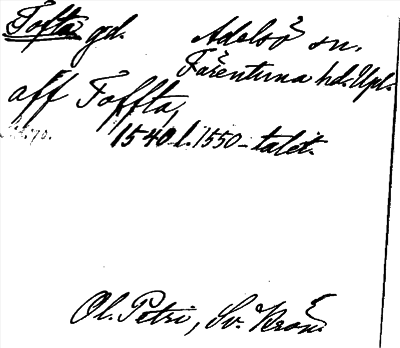 Tofta gd. Adelsö sn.
Färentuna hd. Upl.
aff Toffta,
1540- l. 1550-talet.
Ol. Petri, Sv. Krön.